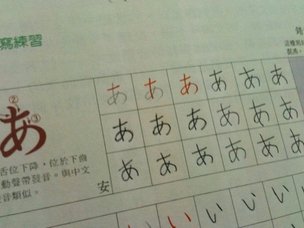 寫練習
② ③
あ
あ あ あ あ あ あ
あ あ あ あ あ あ
あ あ あ あ あ あ
舌位下降，位於下齒
動聲帶發音。與中文
音類似。
安
い い い い